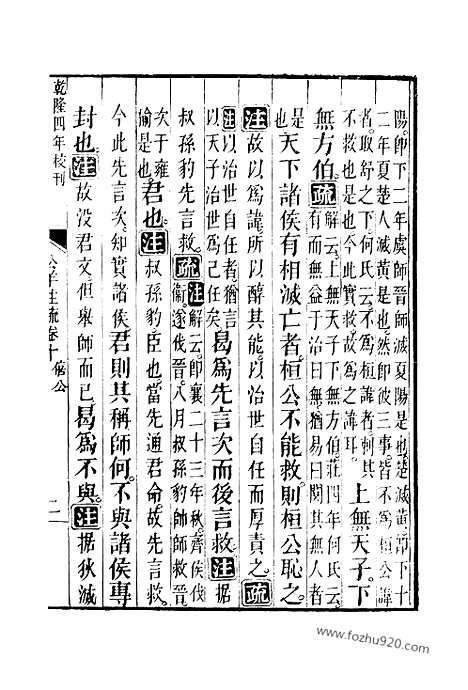 陽卽下二年虞師晉師滅夏陽是也楚滅黃卽下十
二年夏楚人滅黃是也然卽彼三事皆不爲桓公諱
者取舒之下何氏云不爲桓諱者刺其
不救也是也今此實救故爲之諱耳
上無天子下
無方伯疏
解云上無天子下無方伯莊四年何氏云
有而無益于治曰無猶易曰闃其無人者
是
也
天下諸侯有相滅亡者桓公不能救則桓公恥之
注故以爲諱所以醇其能以治世自任而厚責之疏
注以治世自任者猶言
以天子治世爲己任矣
曷爲先言次而後言救注據
叔孫豹先言救疏
注解云卽襄二十三年秋齊侯伐
衞遂伐晉八月叔孫豹帥師救晉
次于雍
揄是也
君也注叔孫豹臣也當先通君命故先言救
今此先言次知實諸侯君則其稱師何不與諸侯專
封也注故没君文但舉師而已曷爲不與注據狄滅
乾隆四年校刊
公羊注疏卷十 僖公
二
www.fozhu920.com